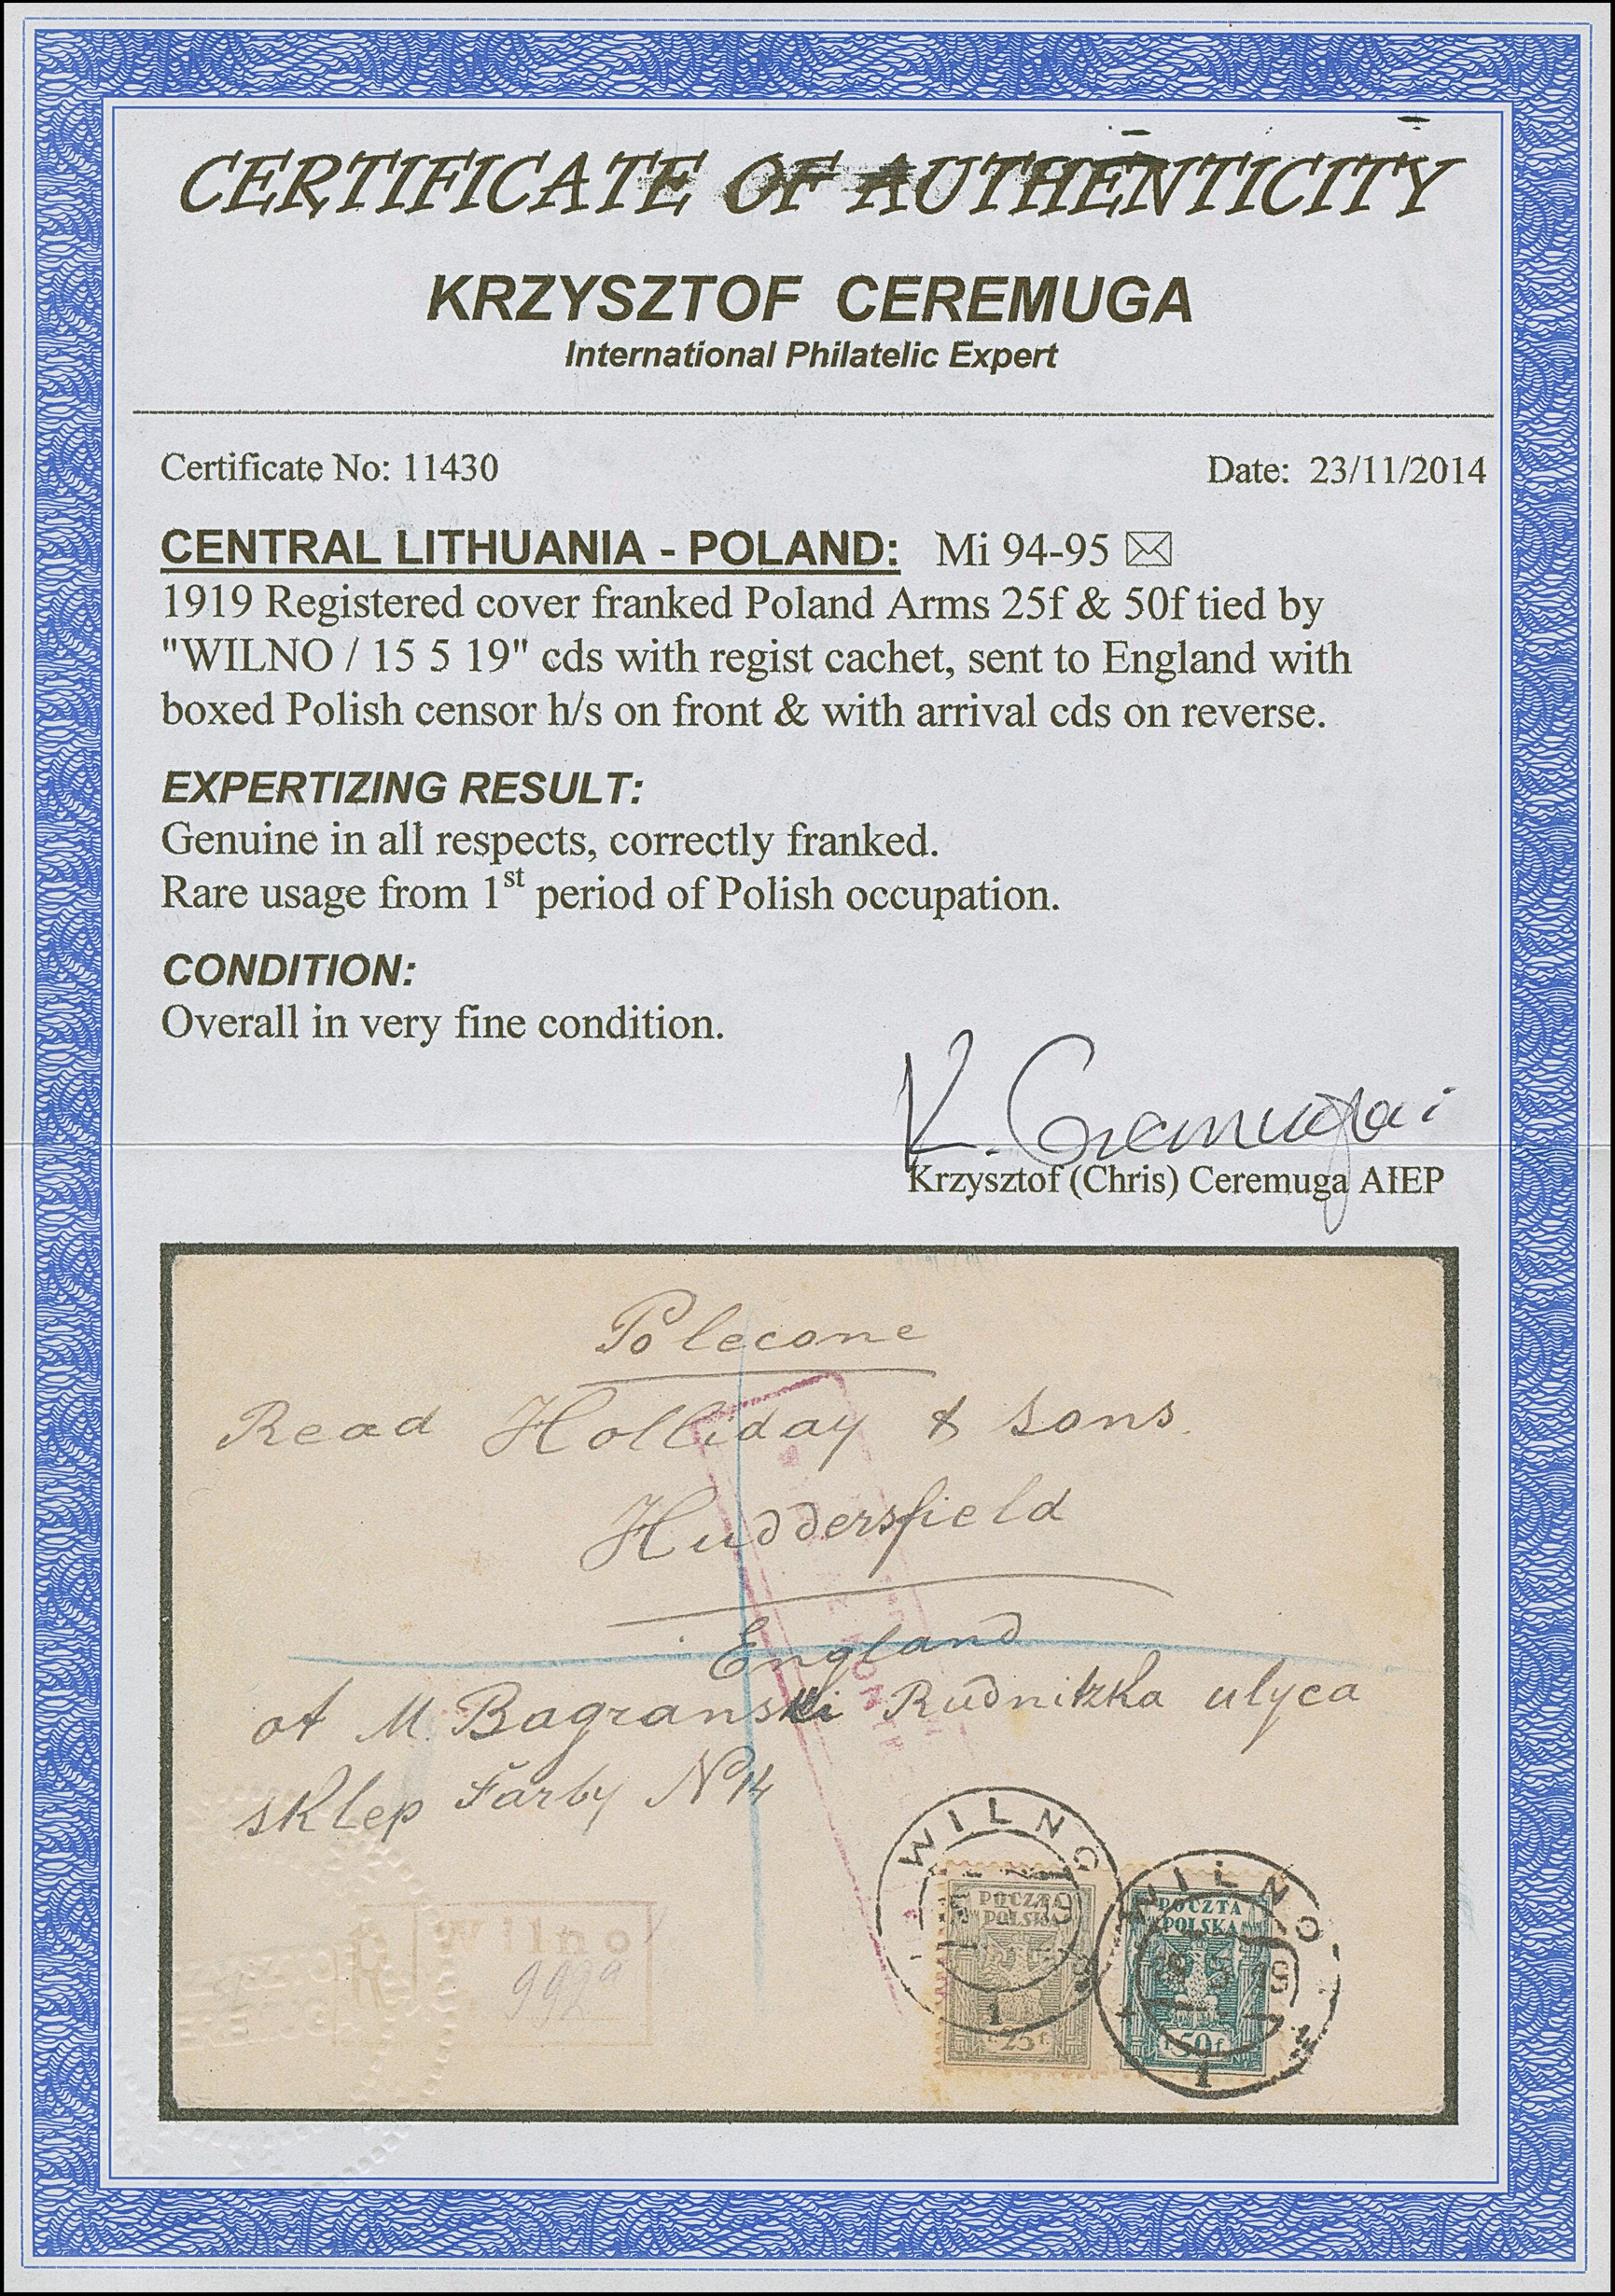 CERTIFICATE OF AUTHENTICITY
KRZYSZTOF CEREMUGA
International Philatelic Expert
Certificate No: 11430
Date: 23/11/2014
CENTRAL LITHUANIA - POLAND: Mi 94-95 ✉
1919 Registered cover franked Poland Arms 25f & 50f tied by
"WILNO / 15 5 19" cds with regist cachet, sent to England with
boxed Polish censor h/s on front & with arrival cds on reverse.
EXPERTIZING RESULT:
Genuine in all respects, correctly franked.
Rare usage from 1st period of Polish occupation.
CONDITION:
Overall in very fine condition.
K. Ceremuga
Krzysztof (Chris) Ceremuga AIEP
Polecone
Read Holliday & Sons.
Huddersfield
England
ot M. Bagranski Rudnitzka ulyca
sklep Farby N 14
R Wilno
992a
WILNO
19
1
POCZTA
POLSKA
25 f.
WILNO
19
1
POCZTA
POLSKA
50 f.
KRZYSZTOF
CEREMUGA